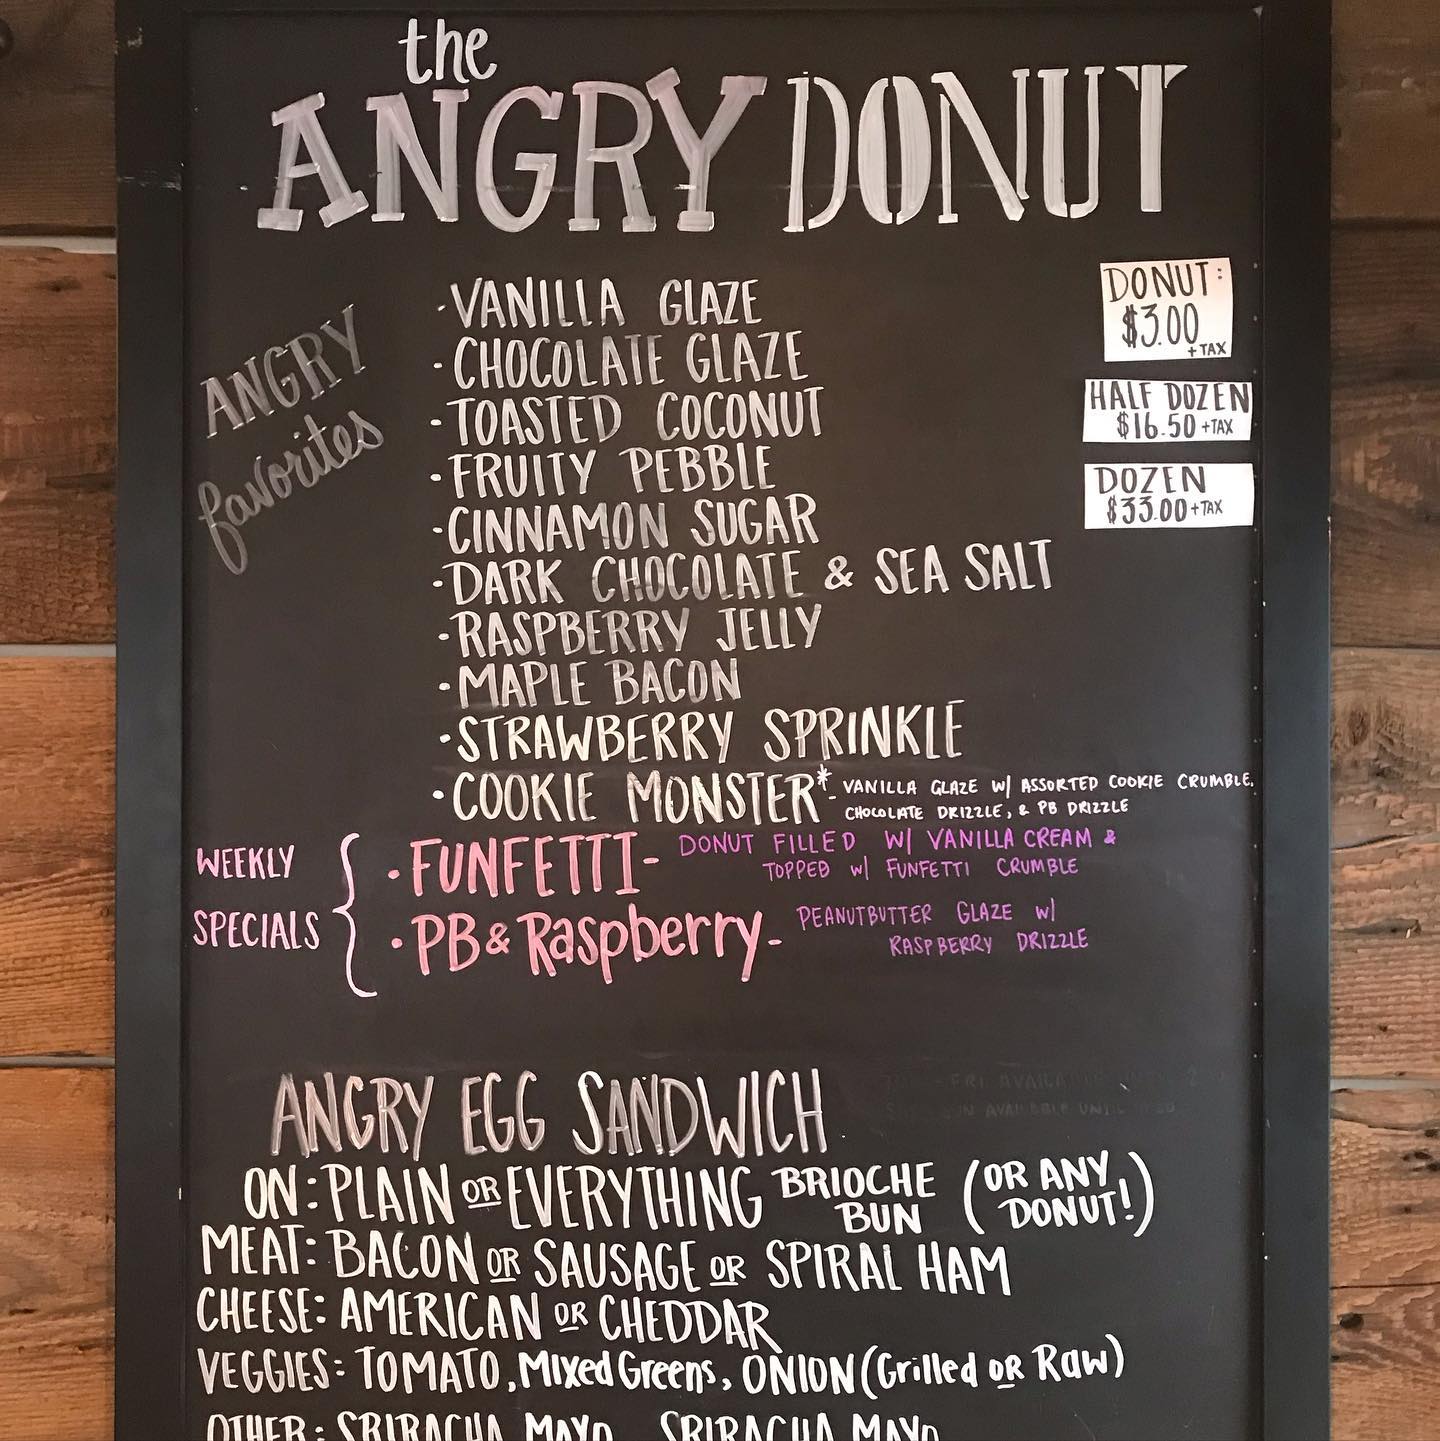 the
ANGRY DONUT
ANGRY
favorites
· VANILLA GLAZE
· CHOCOLATE GLAZE
· TOASTED COCONUT
· FRUITY PEBBLE
· CINNAMON SUGAR
· DARK CHOCOLATE & SEA SALT
· RASPBERRY JELLY
· MAPLE BACON
· STRAWBERRY SPRINKLE
· COOKIE MONSTER* - VANILLA GLAZE W/ ASSORTED COOKIE CRUMBLE,
CHOCOLATE DRIZZLE, & PB DRIZZLE
DONUT:
$3.00
+ TAX
HALF DOZEN
$16.50 + TAX
DOZEN
$33.00 + TAX
WEEKLY
SPECIALS
· FUNFETTI - DONUT FILLED W/ VANILLA CREAM &
TOPPED W/ FUNFETTI CRUMBLE
· PB & Raspberry - PEANUTBUTTER GLAZE W/
RASPBERRY DRIZZLE
ANGRY EGG SANDWICH
ON: PLAIN OR EVERYTHING BRIOCHE BUN (OR ANY DONUT!)
MEAT: BACON OR SAUSAGE OR SPIRAL HAM
CHEESE: AMERICAN OR CHEDDAR
VEGGIES: TOMATO, Mixed Greens, ONION (Grilled OR Raw)
OTHER: SRIRACHA, MAYO, SRIRACHA MAYO